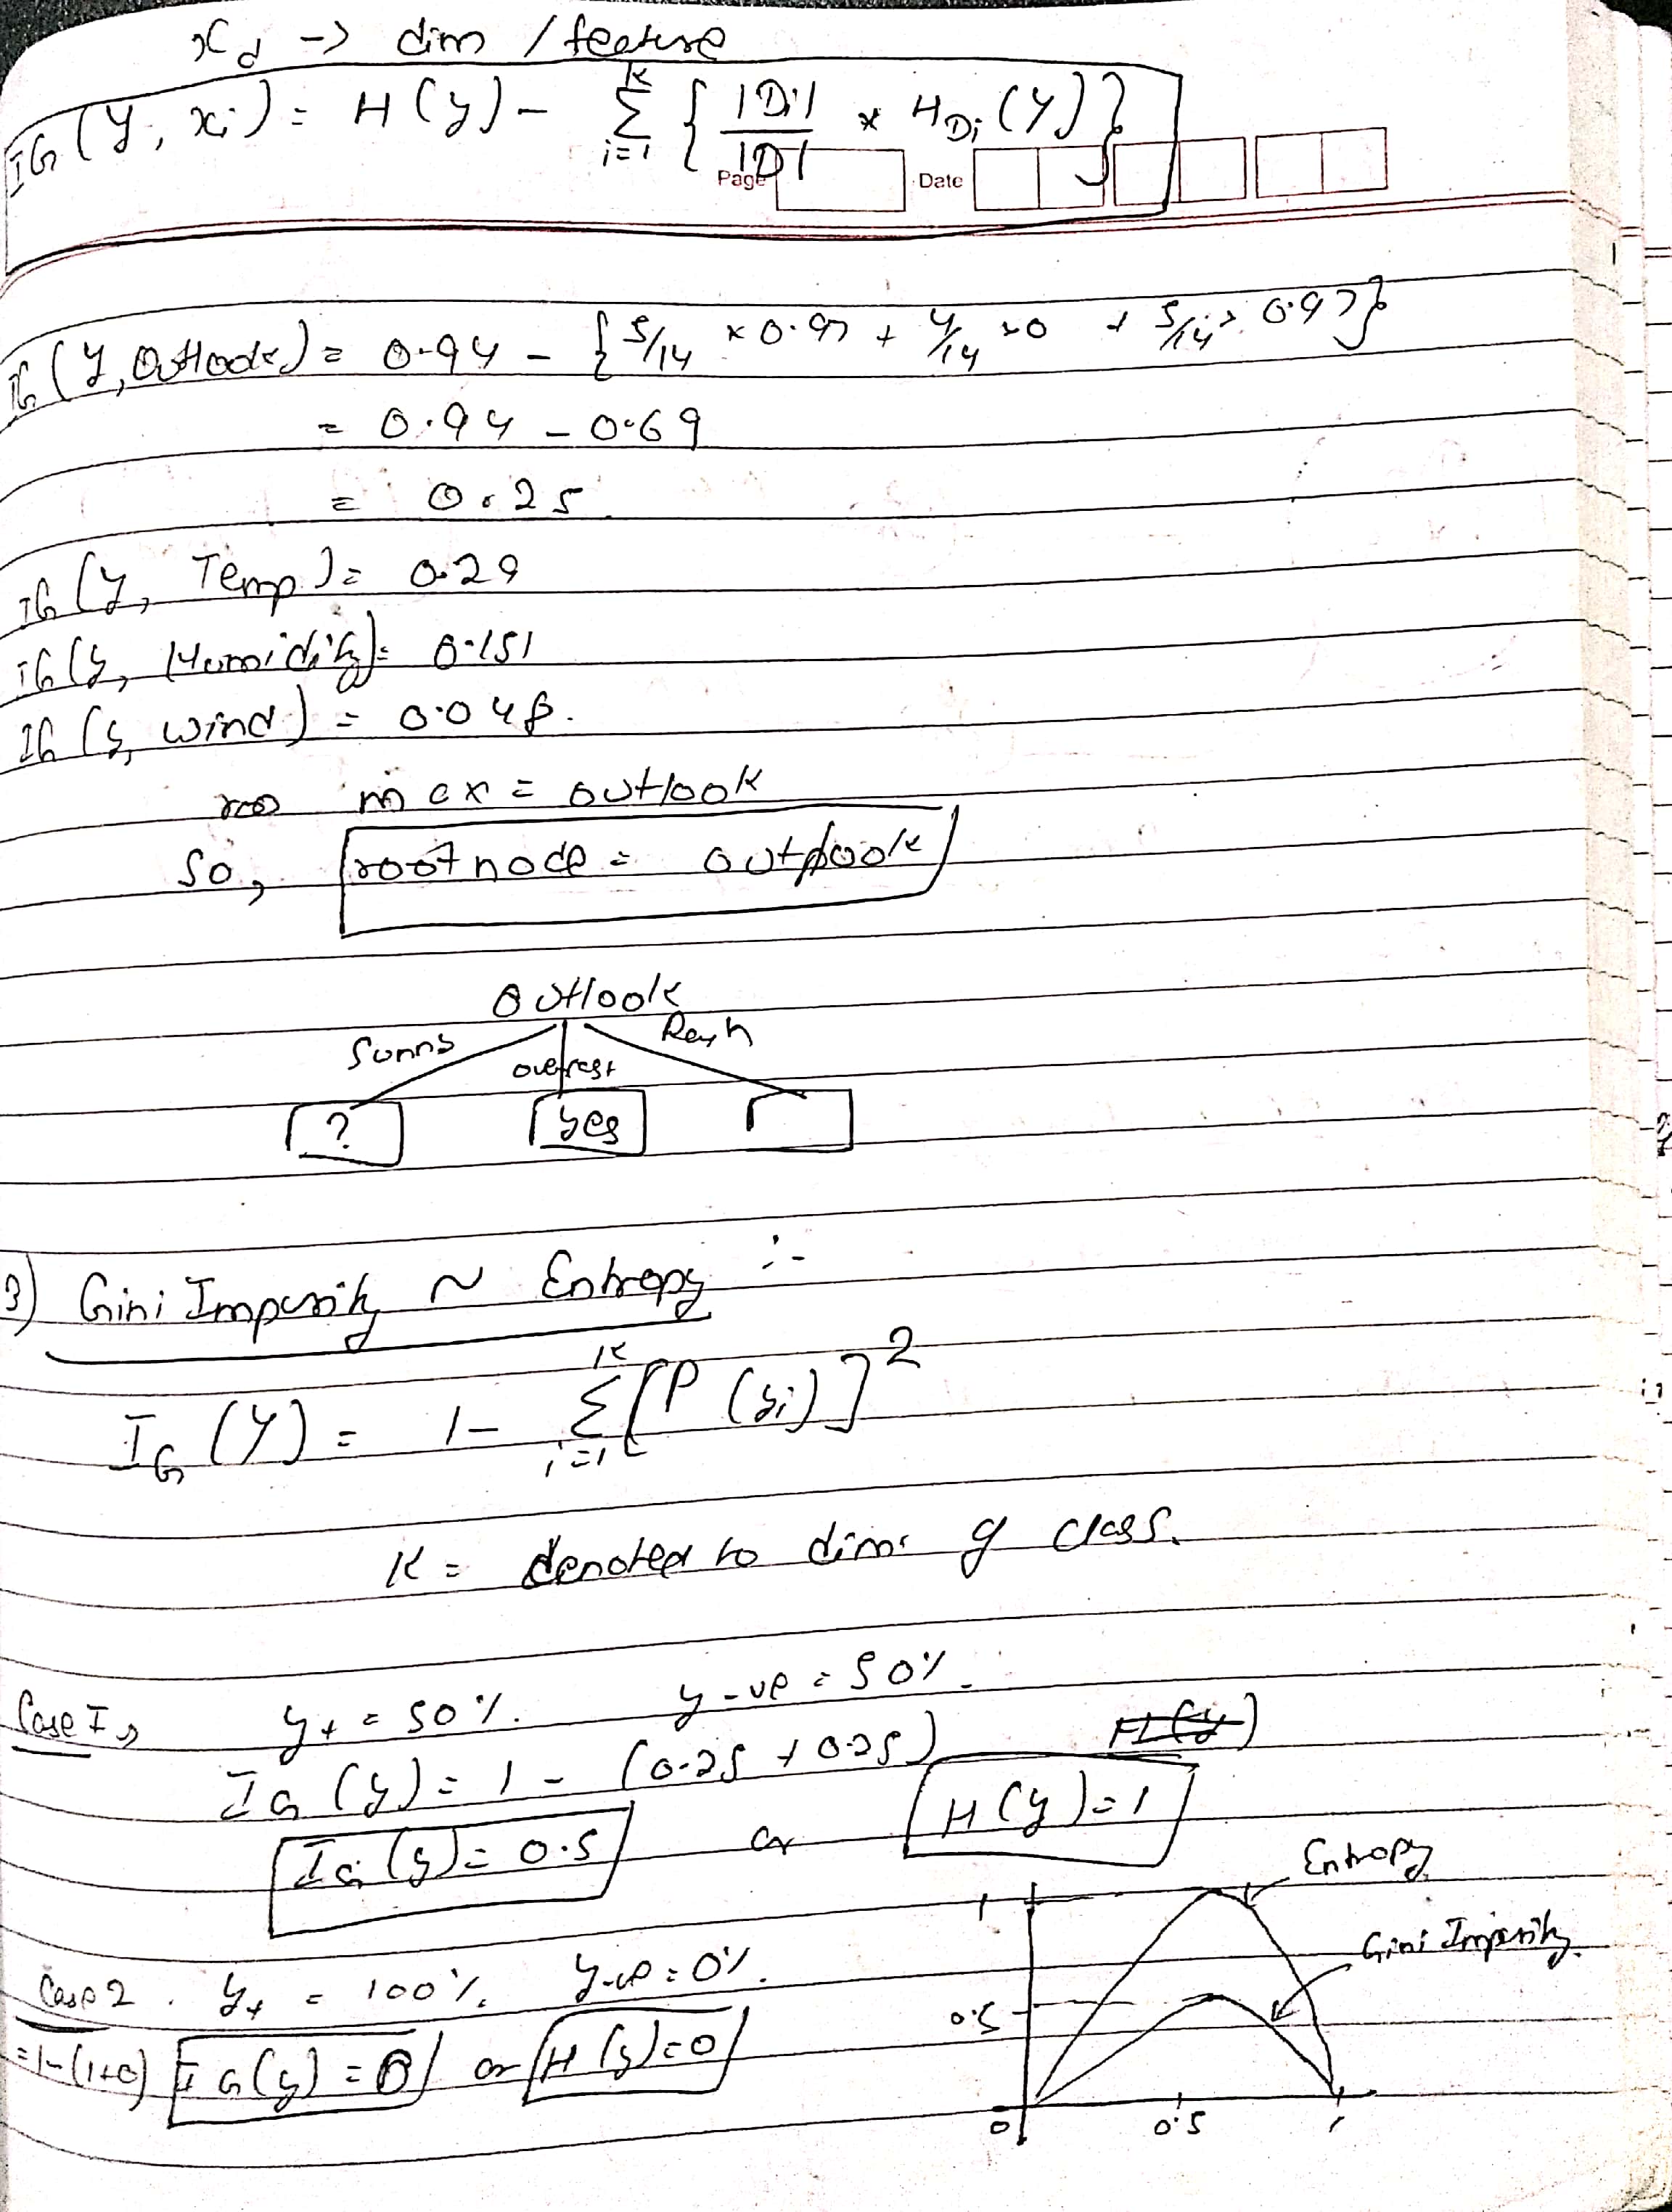 x_d -> dim / feature
IG (y, xi) = H(y) - K Σ i=1 { |Di| / |D| * H_Di (Y) }
Page Date
IG (y, Outlook) = 0.94 - { 5/14 x 0.97 + 4/14 x 0 + 5/14 x 0.97 }
= 0.94 - 0.69
= 0.25
IG (y, Temp) = 0.29
IG (y, Humidity) = 0.151
IG (y, wind) = 0.048.
max = outlook
So, root node = outlook
Outlook
Sunny overcast Rain
? yes
3) Gini Impurity ~ Entropy :-
I_G (Y) = 1 - K Σ i=1 [P (yi)]²
K = denoted to dim. of class.
Case I, y+ = 50%. y-ve = 50%.
I_G (y) = 1 - (0.25 + 0.25) H(y)
I_G (y) = 0.5 or H(y) = 1
Entropy
1
Gini Impurity.
Case 2. y+ = 100%. y-ve = 0%.
0.5
= 1-(1+0) I_G (y) = 0 or H(y) = 0
0 0.5 1